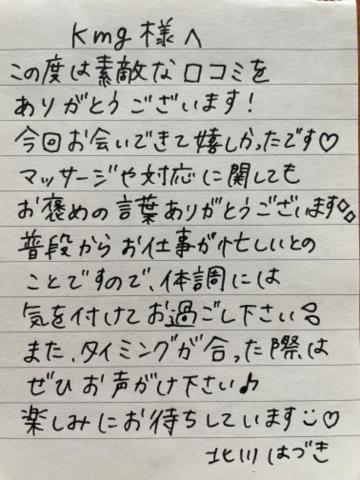 kmg様へ
この度は素敵な口コミを
ありがとうございます!
今回お会いできて嬉しかったです♡
マッサージや対応に関しても
お褒めの言葉ありがとうございます
普段からお仕事が忙しいとの
ことですので、体調には
気を付けてお過ごし下さい
また、タイミングが合った際は
ぜひお声がけ下さい♪
楽しみにお待ちしています♡
北川はづき